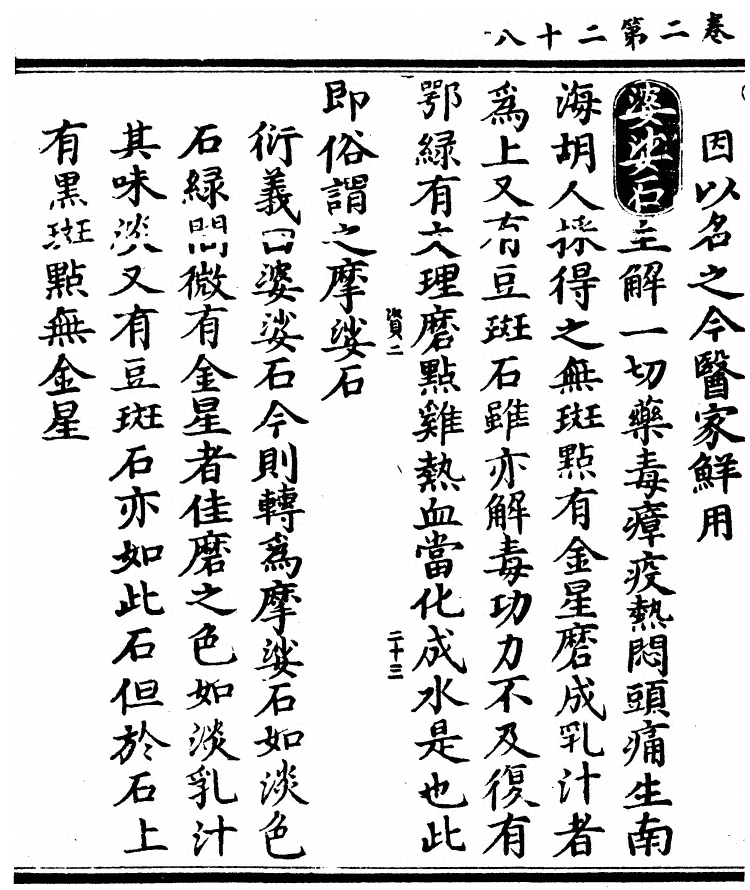 卷二第二十八
因以名之今醫家鮮用
婆娑石主解一切藥毒瘴疫熱悶頭痛生南
海胡人採得之無斑點有金星磨成乳汁者
爲上又有豆斑石雖亦解毒功力不及復有
鄂綠有文理磨點雞熱血當化成水是也此
二
二十三
即俗謂之摩娑石
衍義曰婆娑石今則轉爲摩娑石如淡色
石綠間微有金星者佳磨之色如淡乳汁
其味淡又有豆斑石亦如此石但於石上
有黑斑點無金星